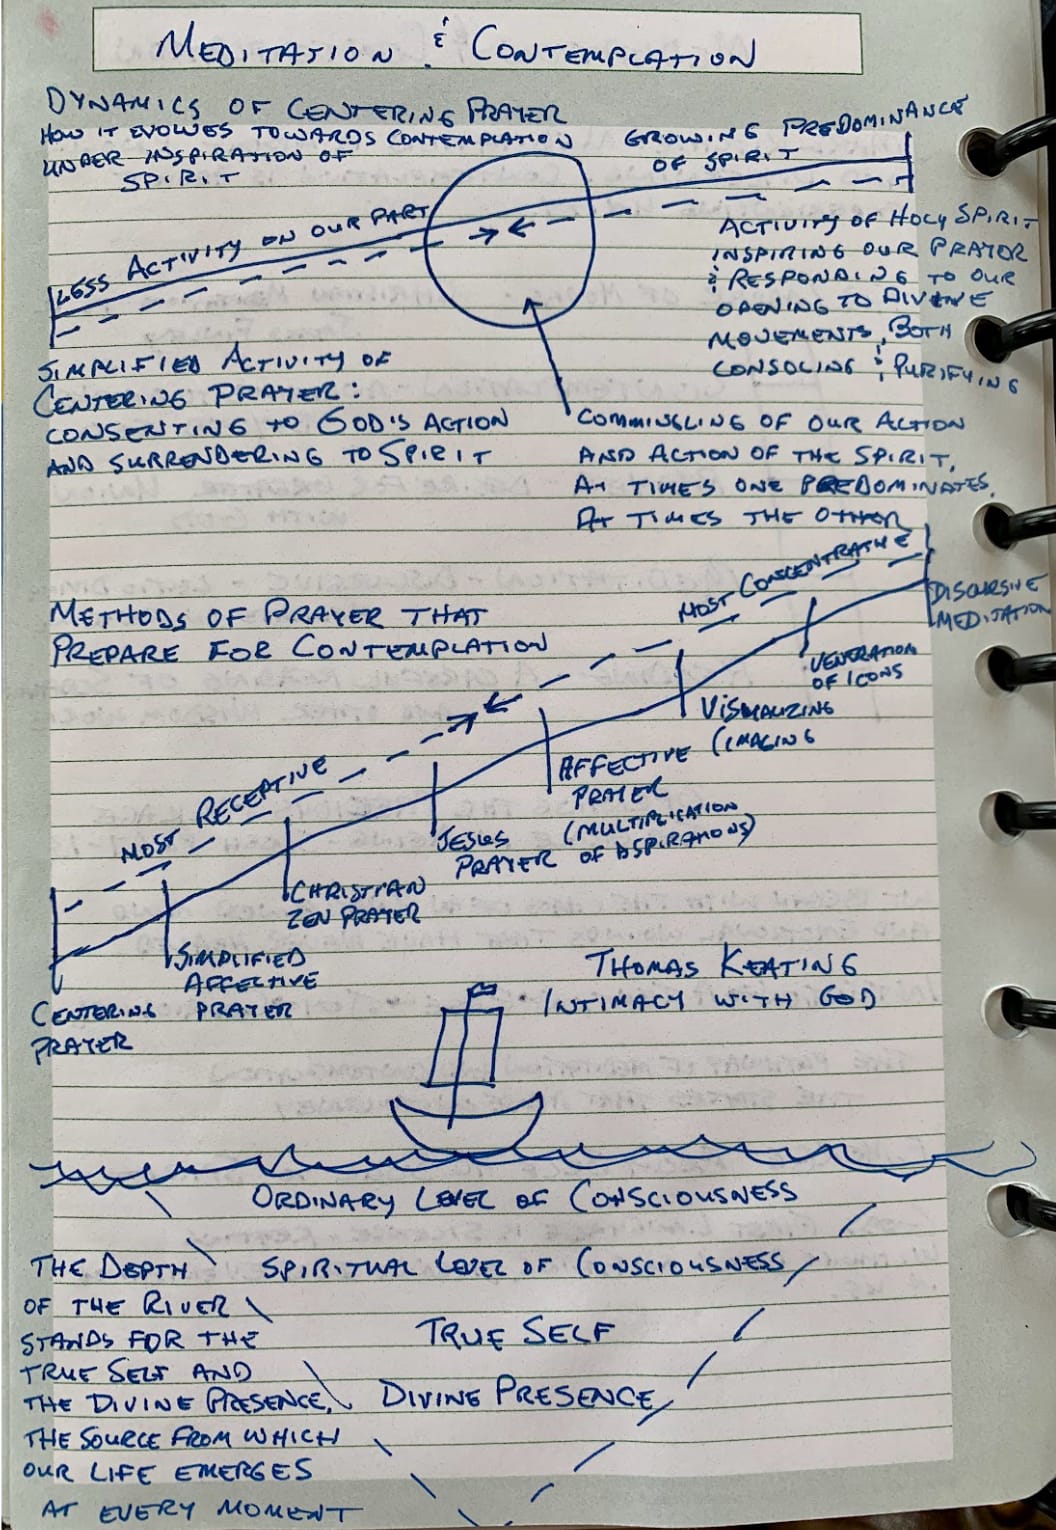 MEDITATION & CONTEMPLATION
DYNAMICS OF CENTERING PRAYER
HOW IT EVOLVES TOWARDS CONTEMPLATION
UNDER INSPIRATION OF
SPIRIT
GROWING PREDOMINANCE
OF SPIRIT
LESS ACTIVITY ON OUR PART
ACTIVITY OF HOLY SPIRIT
INSPIRING OUR PRAYOR
& RESPONDING TO OUR
OPENING TO DIVINE
MOVEMENTS, BOTH
CONSOLING & PURIFYING
SIMPLIFIED ACTIVITY OF
CENTERING PRAYER:
CONSENTING TO GOD'S ACTION
AND SURRENDERING TO SPIRIT
COMMINGLING OF OUR ACTION
AND ACTION OF THE SPIRIT,
AT TIMES ONE PREDOMINATES,
AT TIMES THE OTHER
METHODS OF PRAYER THAT
PREPARE FOR CONTEMPLATION
MOST CONCENTRATIVE
DISCURSIVE
MEDITATION
VENERATION
OF ICONS
VISUALIZING
(IMAGING
AFFECTIVE
PRAYER
(MULTIPLICATION
OF ASPIRATIONS)
MOST RECEPTIVE
JESUS
PRAYER
CHRISTIAN
ZEN PRAYER
SIMPLIFIED
AFFECTIVE
PRAYER
CENTERING
PRAYER
THOMAS KEATING
INTIMACY WITH GOD
ORDINARY LEVEL OF CONSCIOUSNESS
SPIRITUAL LEVEL OF CONSCIOUSNESS
TRUE SELF
DIVINE PRESENCE
THE DEPTH
OF THE RIVER
STANDS FOR THE
TRUE SELF AND
THE DIVINE PRESENCE,
THE SOURCE FROM WHICH
OUR LIFE EMERGES
AT EVERY MOMENT